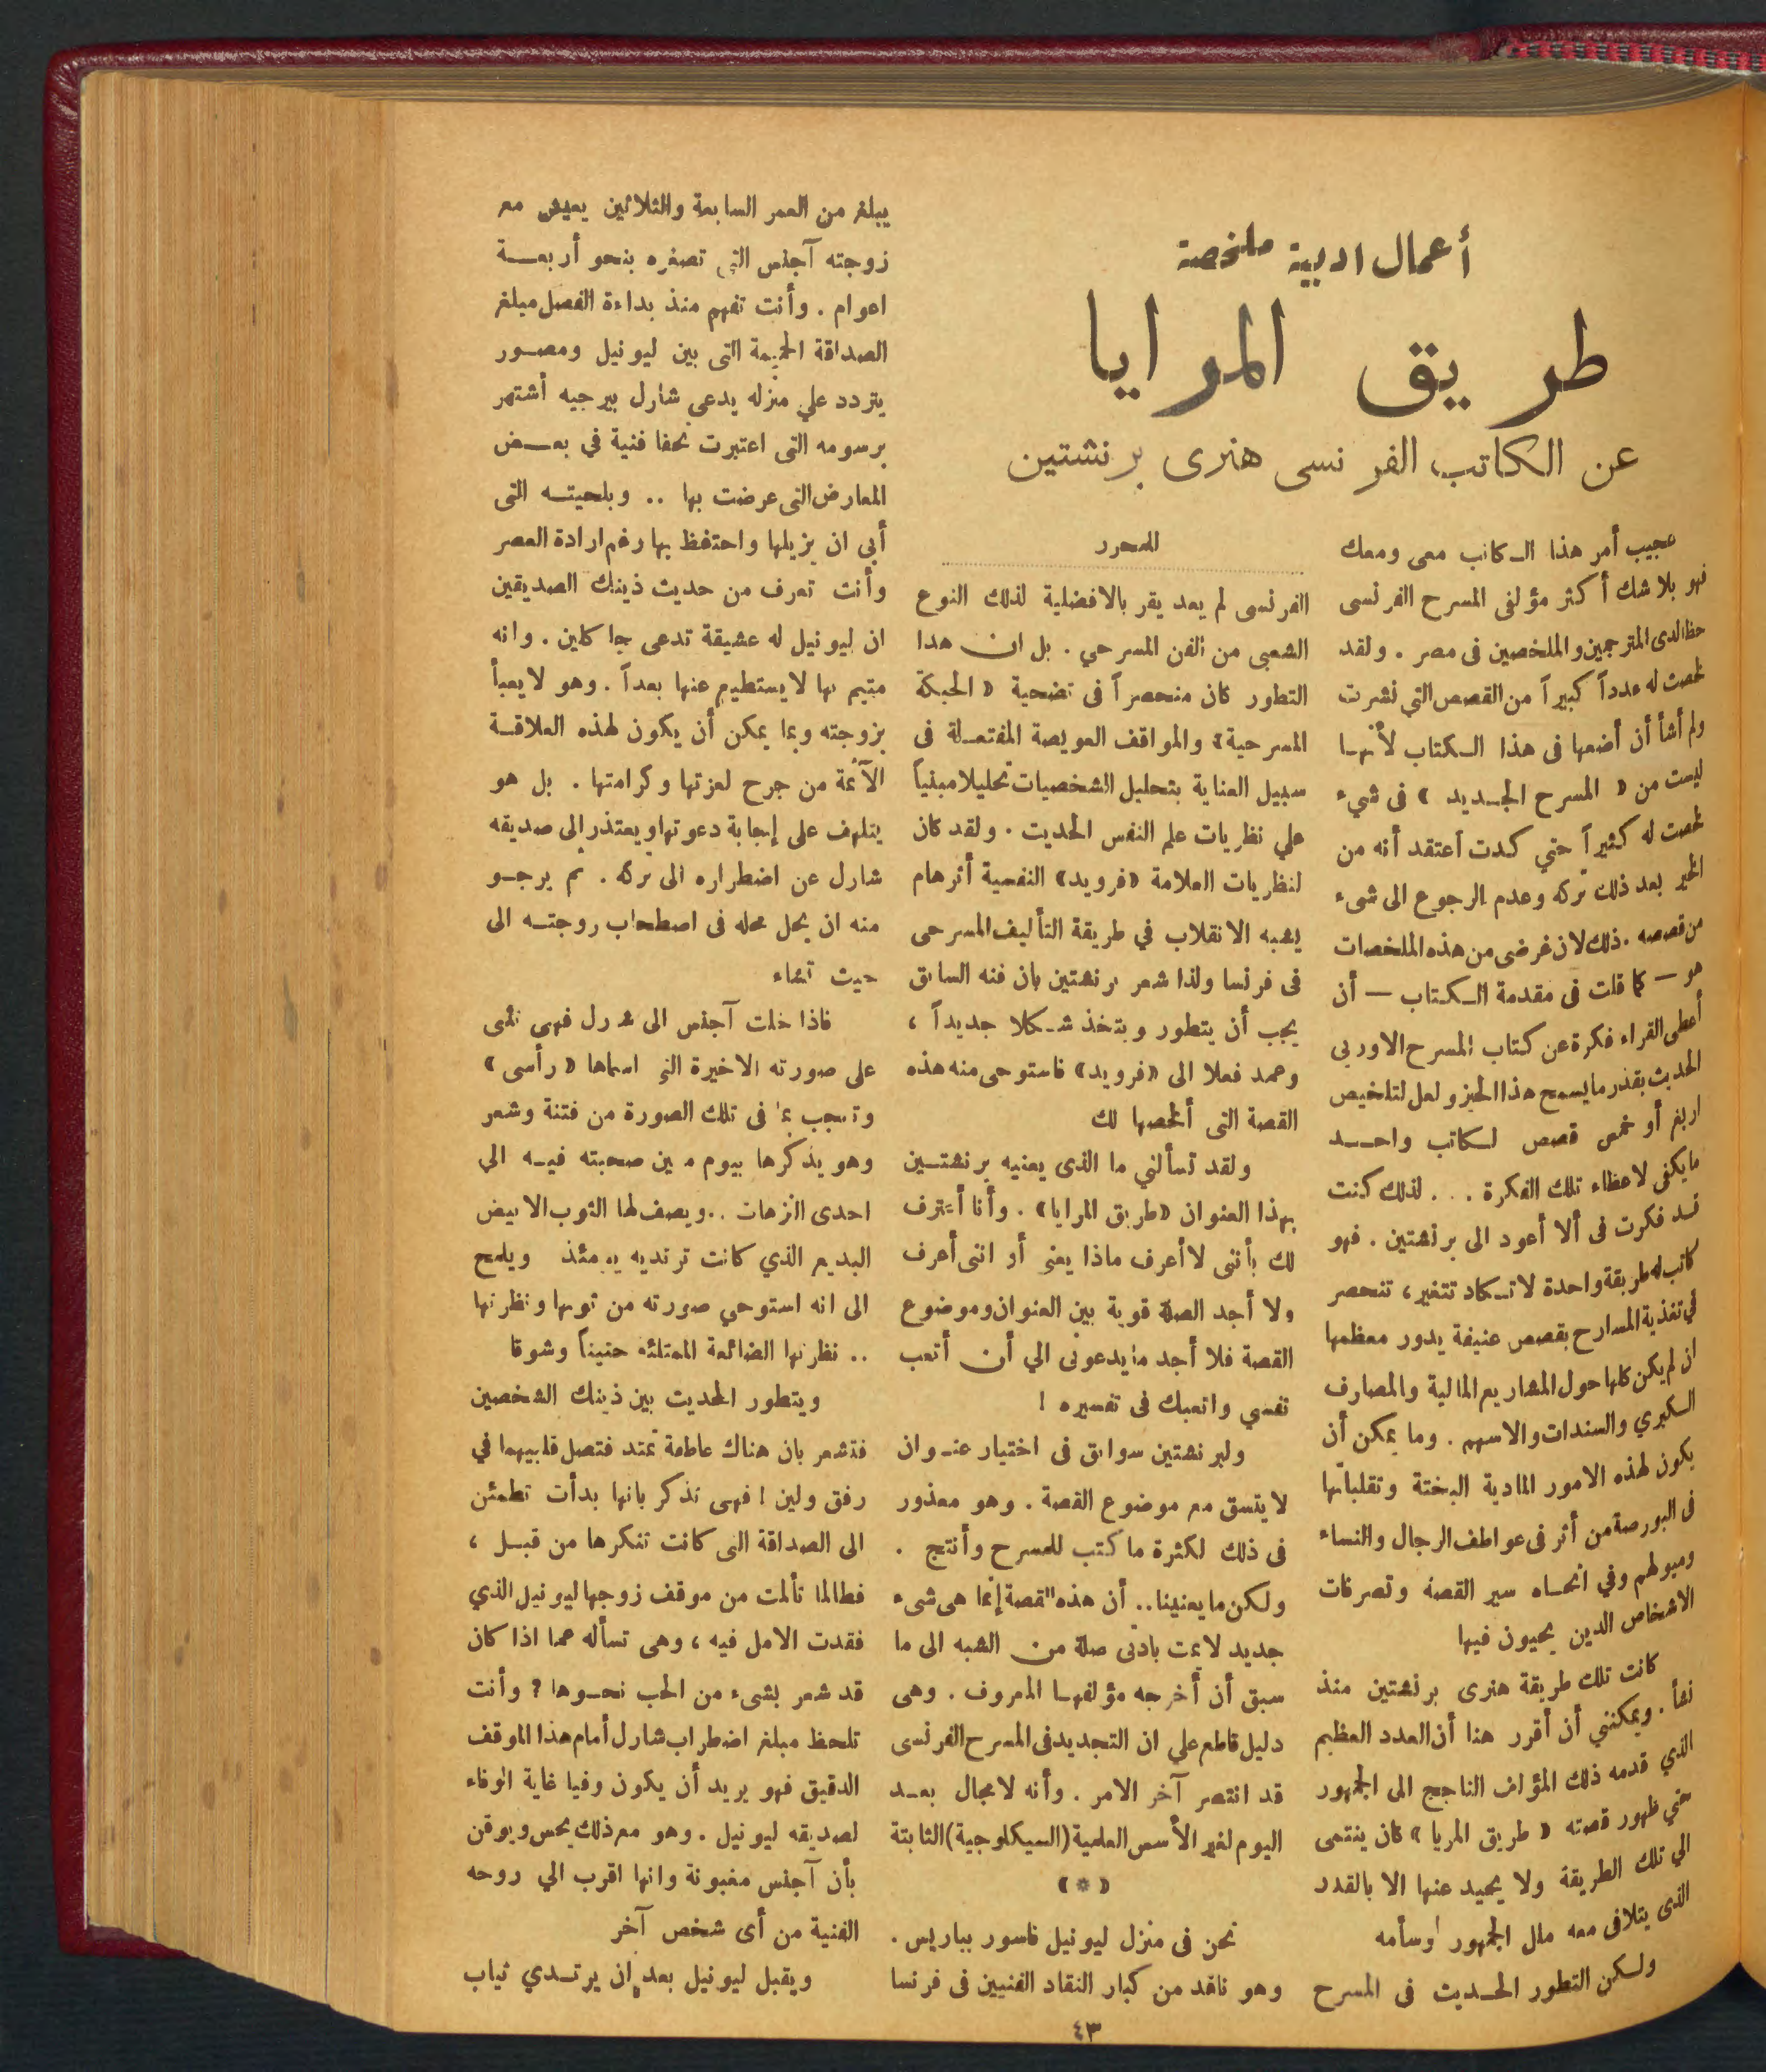 أعمال ادبية ملخصة
طريق المرايا
عن الكاتب الفرنسى هنرى برنشتين
للمحرر
عجيب أمر هذا الكاتب معى ومعك
فهو بلا شك أكثر مؤلفى المسرح الفرنسى
حظا لدى المترجمين والملخصين فى مصر . ولقد
لخصت له عدداً كبيراً من القصص التي نشرت
ولم أشأ أن أضعها فى هذا الكتاب لأنها
ليست من « المسرح الجديد » فى شيء
لخصت له كثيراً حتي كدت أعتقد أنه من
الخير بعد ذلك تركه وعدم الرجوع الى شىء
من قصصه . ذلك لان غرضى من هذه الملخصات
هو — كما قلت فى مقدمة الكتاب — أن
أعطى القراء فكرة عن كتاب المسرح الاوربى
الحديث بقدر ما يسمح هذا الحيز ولعل لتلخيص
اربع أو خمس قصص لكاتب واحد
ما يكفى لاعطاء تلك الفكرة ... لذلك كنت
قد فكرت فى ألا أعود الى برنشتين . فهو
كاتب له طريقة واحدة لا تكاد تتغير ، تنحصر
في تغذية المسارح بقصص عنيفة يدور معظمها
ان لم يكن كلها حول المشاريع المالية والمصارف
الكبري والسندات والاسهم . وما يمكن أن
يكون لهذه الامور المادية البحتة وتقلباتها
فى البورصة من أثر فى عواطف الرجال والنساء
وميولهم وفي اتجاه سير القصة وتصرفات
الاشخاص الدين يحيون فيها
كانت تلك طريقة هنرى برنشتين منذ
نشأ . ويمكنني أن أقرر هنا أن العدد العظيم
الذي قدمه ذلك المؤلف الناجح الى الجمهور
حتي ظهور قصته « طريق المريا » كان ينتمى
الي تلك الطريقة ولا يحيد عنها الا بالقدر
الذى يتلافى معه ملل الجمهور أوسأمه
ولكن التطور الحديث فى المسرح
الفرنسى لم يعد يقر بالافضلية لذلك النوع
الشعبى من الفن المسرحي . بل ان هدا
التطور كان منحصراً فى تضحية « الحبكة
المسرحية » والمواقف العويصة المفتعلة فى
سبيل العناية بتحليل الشخصيات تحليلا مبنياً
علي نظريات علم النفس الحديث . ولقد كان
لنظريات العلامة «فرويد» النفسية أثرهام
يشبه الانقلاب في طريقة التأليف المسرحى
فى فرنسا ولذا شعر برنشتين بان فنه السابق
يجب أن يتطور ويتخذ شكلا جديداً ،
وعمد فعلا الى «فرويد» فاستوحى منه هذه
القصة التى ألخصها لك
ولقد تسألني ما الذى يعنيه برنشتين
بهذا العنوان «طريق المرايا» . وأنا أعترف
لك بأننى لا أعرف ماذا يعنى أو اننى أعرف
ولا أجد الصلة قوية بين العنوان وموضوع
القصة فلا أجد ما يدعونى الي أن أتعب
نفسي واتعبك فى تفسيره !
ولبرنشتين سوابق فى اختيار عنوان
لا يتسق مع موضوع القصة . وهو معذور
فى ذلك لكثرة ما كتب للمسرح وأنتج .
ولكن ما يعنينا .. أن هذه القصة إنما هى شىء
جديد لا يمت بادنى صلة من الشبه الى ما
سبق أن أخرجه مؤلفها المعروف . وهى
دليل قاطع علي ان التجديد فى المسرح الفرنسى
قد انتصر آخر الامر . وأنه لا مجال بعد
اليوم لغير الأسس العلمية (السيكلوجية) الثابتة
(*)
نحن فى منزل ليونيل فاسور بباريس .
وهو ناقد من كبار النقاد الفنيين فى فرنسا
يبلغ من العمر السابعة والثلاثين يعيش مع
زوجته آجنس التى تصغره بنحو أربعة
اعوام . وأنت تفهم منذ بداءة الفصل مبلغ
الصداقة الحميمة التى بين ليونيل ومصور
يتردد علي منزله يدعي شارل بيرجيه أشتهر
برسومه التى اعتبرت تحفا فنية في بعض
المعارض التى عرضت بها .. وبلحيته التى
أبي ان يزيلها واحتفظ بها رغم ارادة العصر
وأنت تعرف من حديث ذينك الصديقين
ان ليونيل له عشيقة تدعى جاكلين . وانه
متيم بها لا يستطيع عنها بعداً . وهو لا يعبأ
بزوجته وبما يمكن أن يكون لهذه العلاقة
الآثمة من جرح لعزتها وكرامتها . بل هو
يتلهف على إجابة دعوتها ويعتذر إلى صديقه
شارل عن اضطراره الى تركه . ثم يرجو
منه ان يحل محله فى اصطحاب روجته الى
حيث تشاء
فاذا خلت آجنس الى شارل فهى تثنى
على صورته الاخيرة التى اسماها « رأسى »
وتعجب بما فى تلك الصورة من فتنة وشعر
وهو يذكرها بيوم معين صحبته فيه الي
احدى النزهات .. ويصف لها الثوب الابيض
البديع الذي كانت ترتديه يومئذ ويلمح
الى انه استوحي صورته من ثوبها ونظرتها
.. نظرتها الضائعة الممتلئه حنيناً وشوقا
ويتطور الحديث بين ذينك الشخصين
فتشعر بان هناك عاطفة تمتد فتصل قلبيهما في
رفق ولين ! فهى تذكر بانها بدأت تطمئن
الى الصداقة التى كانت تنكرها من قبل ،
فطالما تألمت من موقف زوجها ليونيل الذي
فقدت الامل فيه ، وهى تسأله عما اذا كان
قد شعر بشىء من الحب نحوها ؟ وأنت
تلحظ مبلغ اضطراب شارل أمام هذا الموقف
الدقيق فهو يريد أن يكون وفيا غاية الوفاء
لصديقه ليونيل . وهو مع ذلك يحس ويوقن
بأن آجنس مغبونة وانها اقرب الي روحه
الفنية من أى شخص آخر
ويقبل ليونيل بعد ان يرتدي ثياب
٤٣